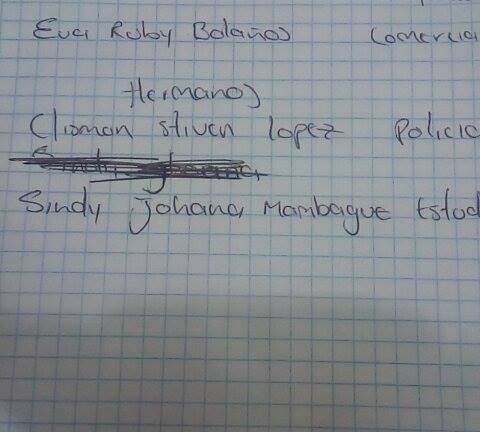 Eva Ruby Bolaños Comercia
Hermanos
Clisman stiven lopez Policia
Sindy Johana Mambague Estud